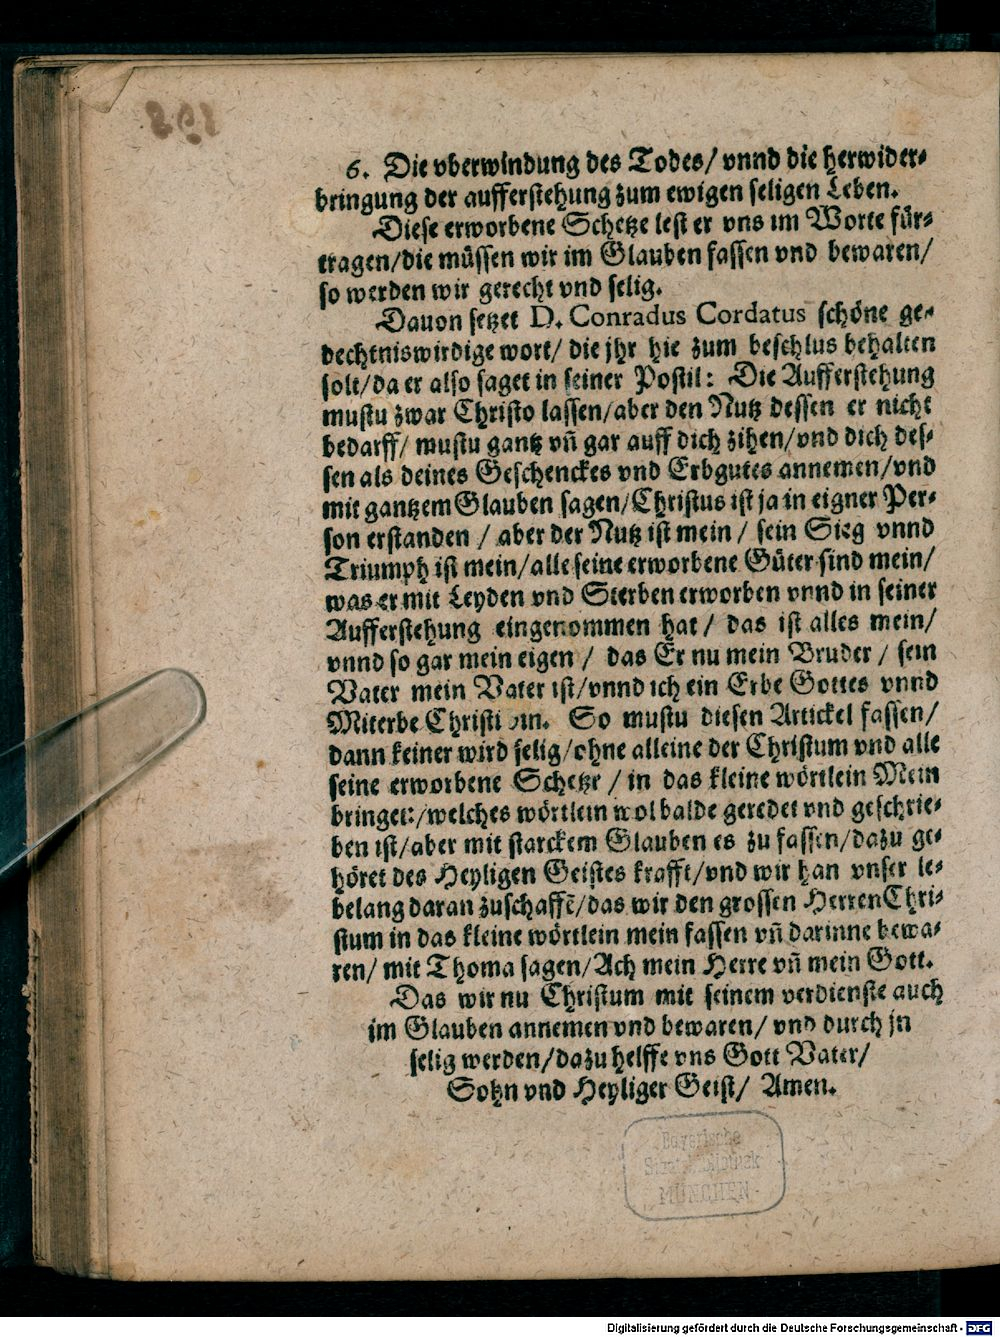 6. Die vberwindung des Todes/ vnnd die herwider-
bringung der aufferstehung zum ewigen seligen Leben.
Diese erworbene Schetze lest er vns im Worte für-
tragen/die müssen wir im Glauben fassen vnd bewaren/
so werden wir gerecht vnd selig.
Dauon setzet D. Conradus Cordatus schöne ge-
dechtniswirdige wort/ die jhr hie zum beschlus behalten
solt/da er also saget in seiner Postil: Die Aufferstehung
mustu zwar Christo lassen/aber den Nutz dessen er nicht
bedarff/ mustu gantz vñ gar auff dich zihen/vnd dich des-
sen als deines Geschenckes vnd Erbgutes annemen/vnd
mit gantzem Glauben sagen/Christus ist ja in eigner Per-
son erstanden / aber der Nutz ist mein / sein Sieg vnnd
Triumph ist mein/alle seine erworbene Güter sind mein/
was er mit Leyden vnd Sterben erworben vnnd in seiner
Aufferstehung eingenommen hat / das ist alles mein/
vnnd so gar mein eigen / das Er nu mein Bruder / sein
Vater mein Vater ist/vnnd ich ein Erbe Gottes vnnd
Miterbe Christi bin. So mustu diesen Artickel fassen/
dann keiner wird selig/ohne alleine der Christum vnd alle
seine erworbene Schetze / in das kleine wörtlein Mein
bringet:/welches wörtlein wol balde geredet vnd geschrie-
ben ist/aber mit starckem Glauben es zu fassen/dazu ge-
höret des Heyligen Geistes krafft/vnd wir han vnser le-
belang daran zuschaffē/das wir den grossen Herren Chri-
stum in das kleine wörtlein mein fassen vñ darinne bewa-
ren/ mit Thoma sagen/Ach mein Herre vñ mein Gott.
Das wir nu Christum mit seinem verdienste auch
im Glauben annemen vnd bewaren/ vnd durch jn
selig werden/dazu helffe vns Gott Vater/
Sohn vnd Heyliger Geist/ Amen.
Bayerische
Staatsbibliothek
MÜNCHEN
Digitalisierung gefördert durch die Deutsche Forschungsgemeinschaft - DFG